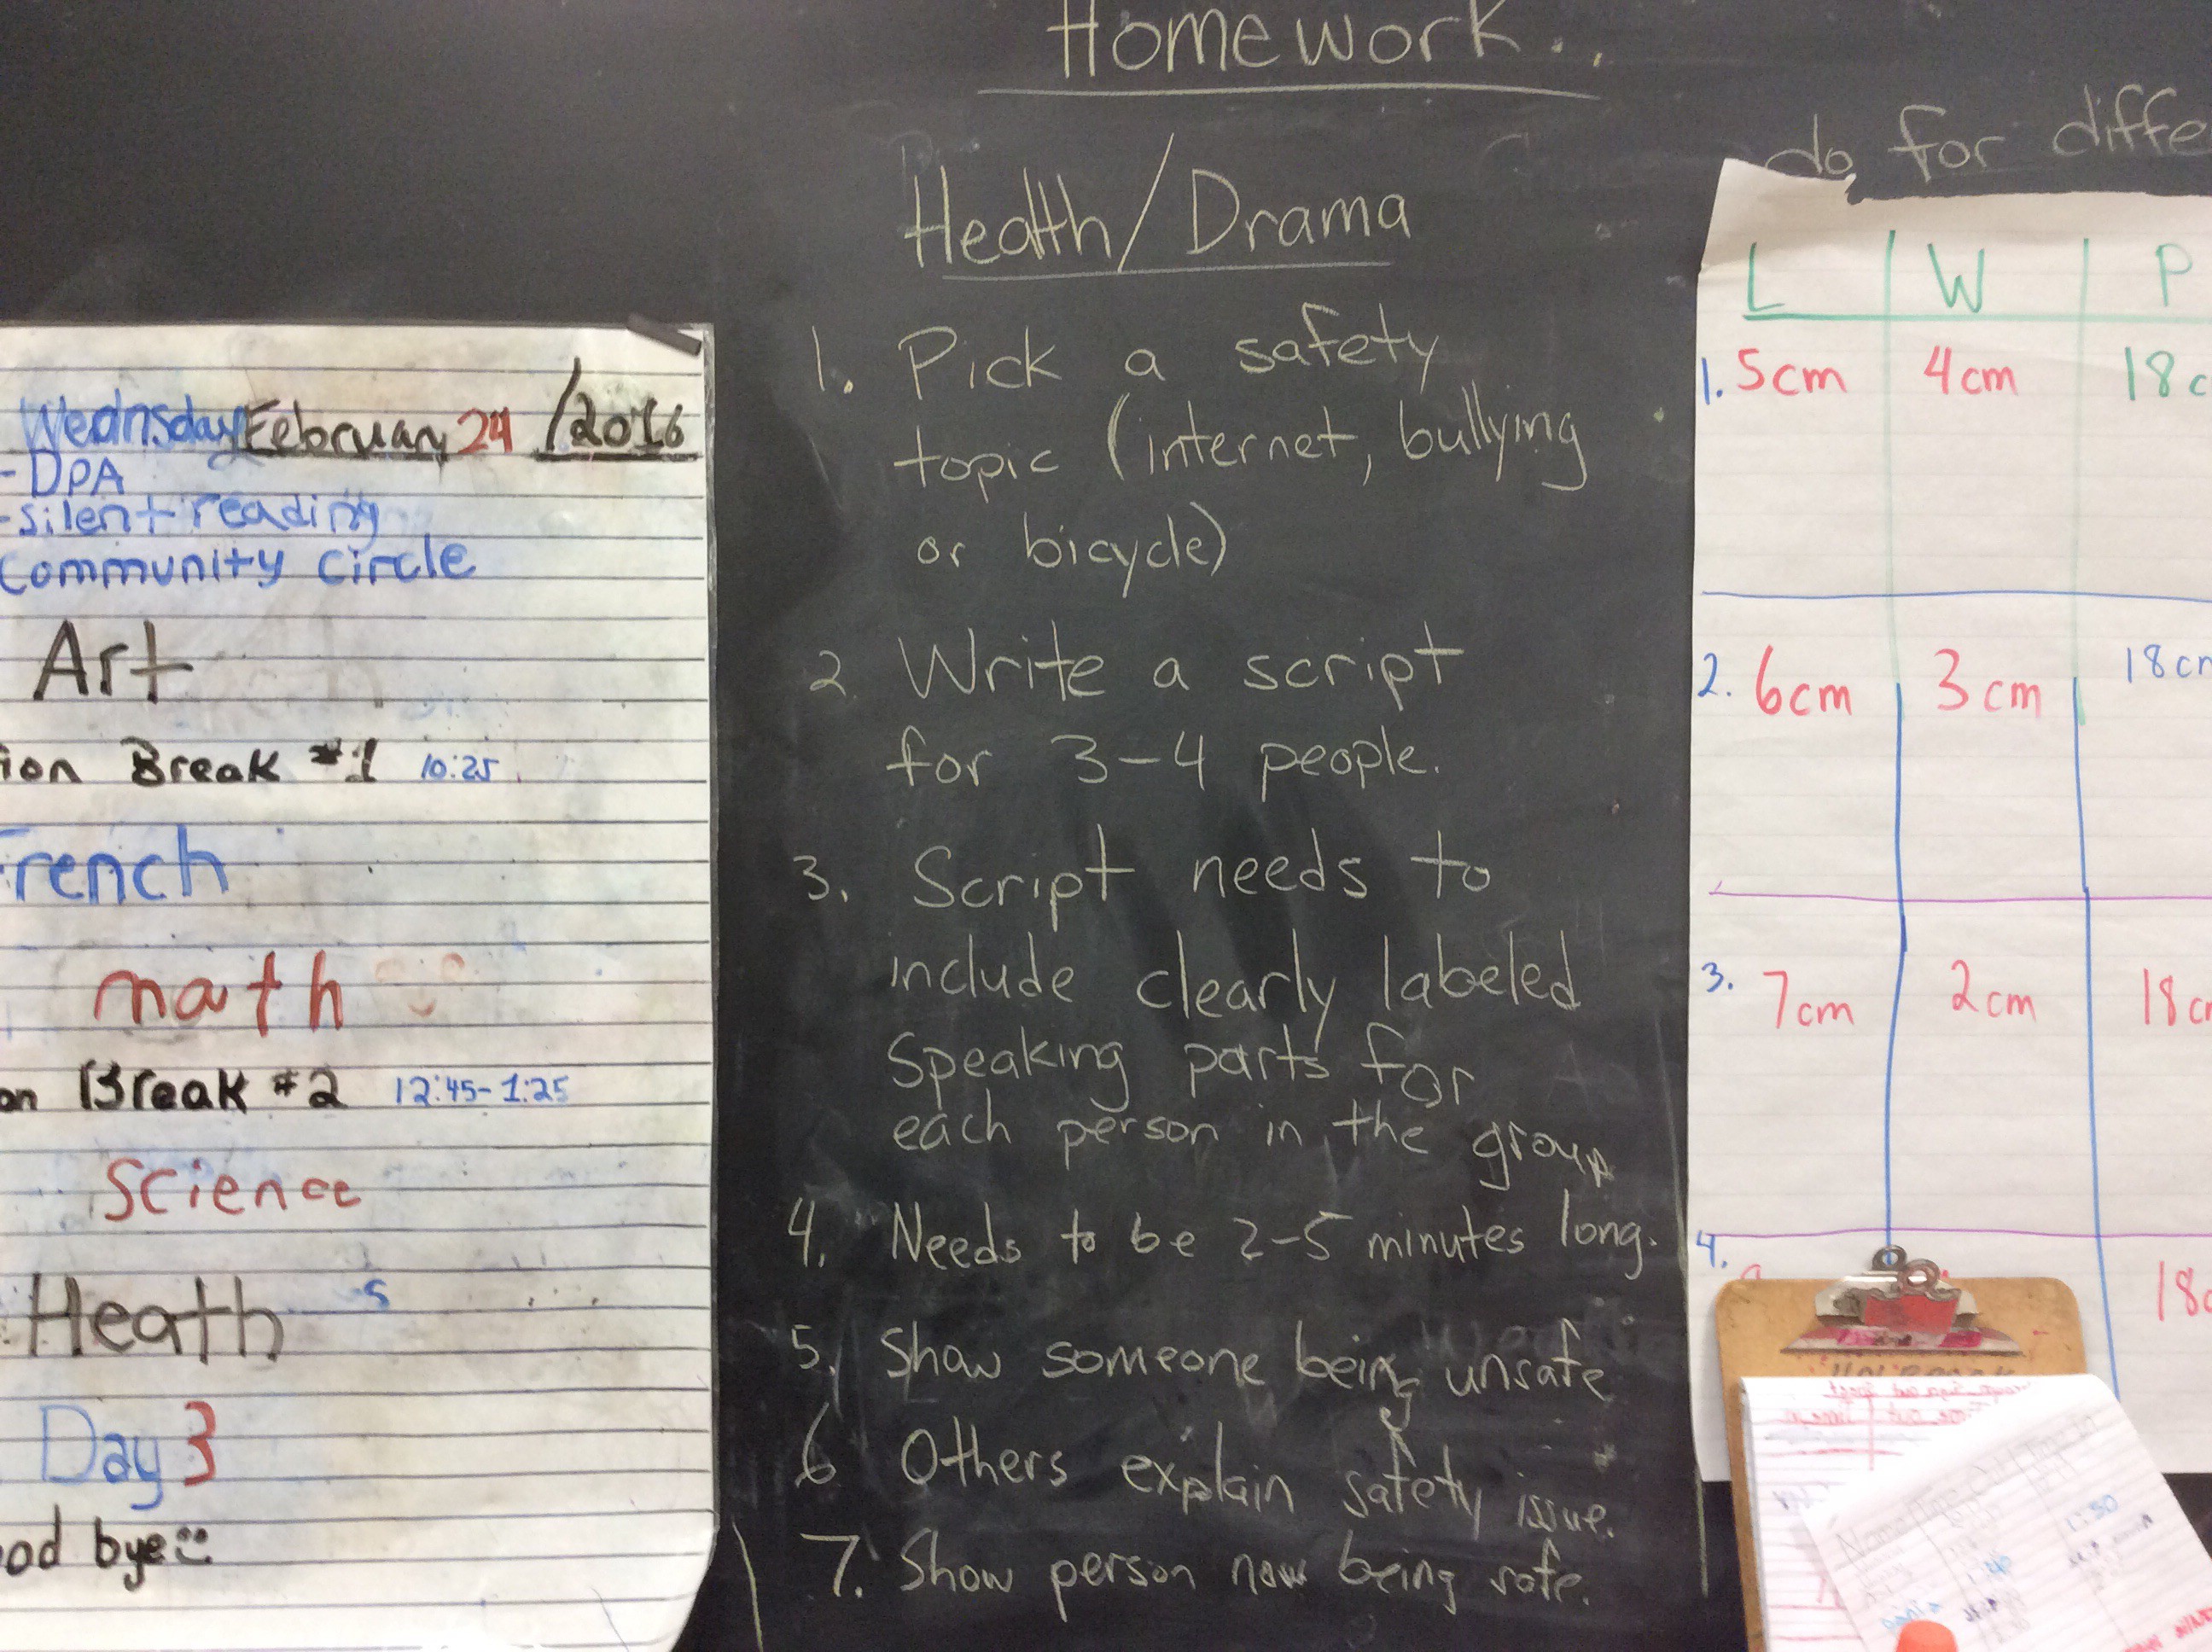 Homework...
do for diffe
Health/Drama
1. Pick a safety
topic (internet, bullying
or bicycle)
2. Write a script
for 3-4 people.
3. Script needs to
include clearly labeled
Speaking parts for
each person in the group
4. Needs to be 2-5 minutes long.
5. Show someone being unsafe
6 Others explain safety issue.
7. Show person now being safe.
Wednsday February 24 /2016
- DPA
- silent reading
Community circle
Art
ion Break #1 10:25
French
math
on Break #2 12:45-1:25
Science
Heath
Day 3
od bye
L W P
1. 5cm 4cm 18c
2. 6cm 3cm 18cm
3. 7cm 2cm 18cm
4. 18c
Name
1:50